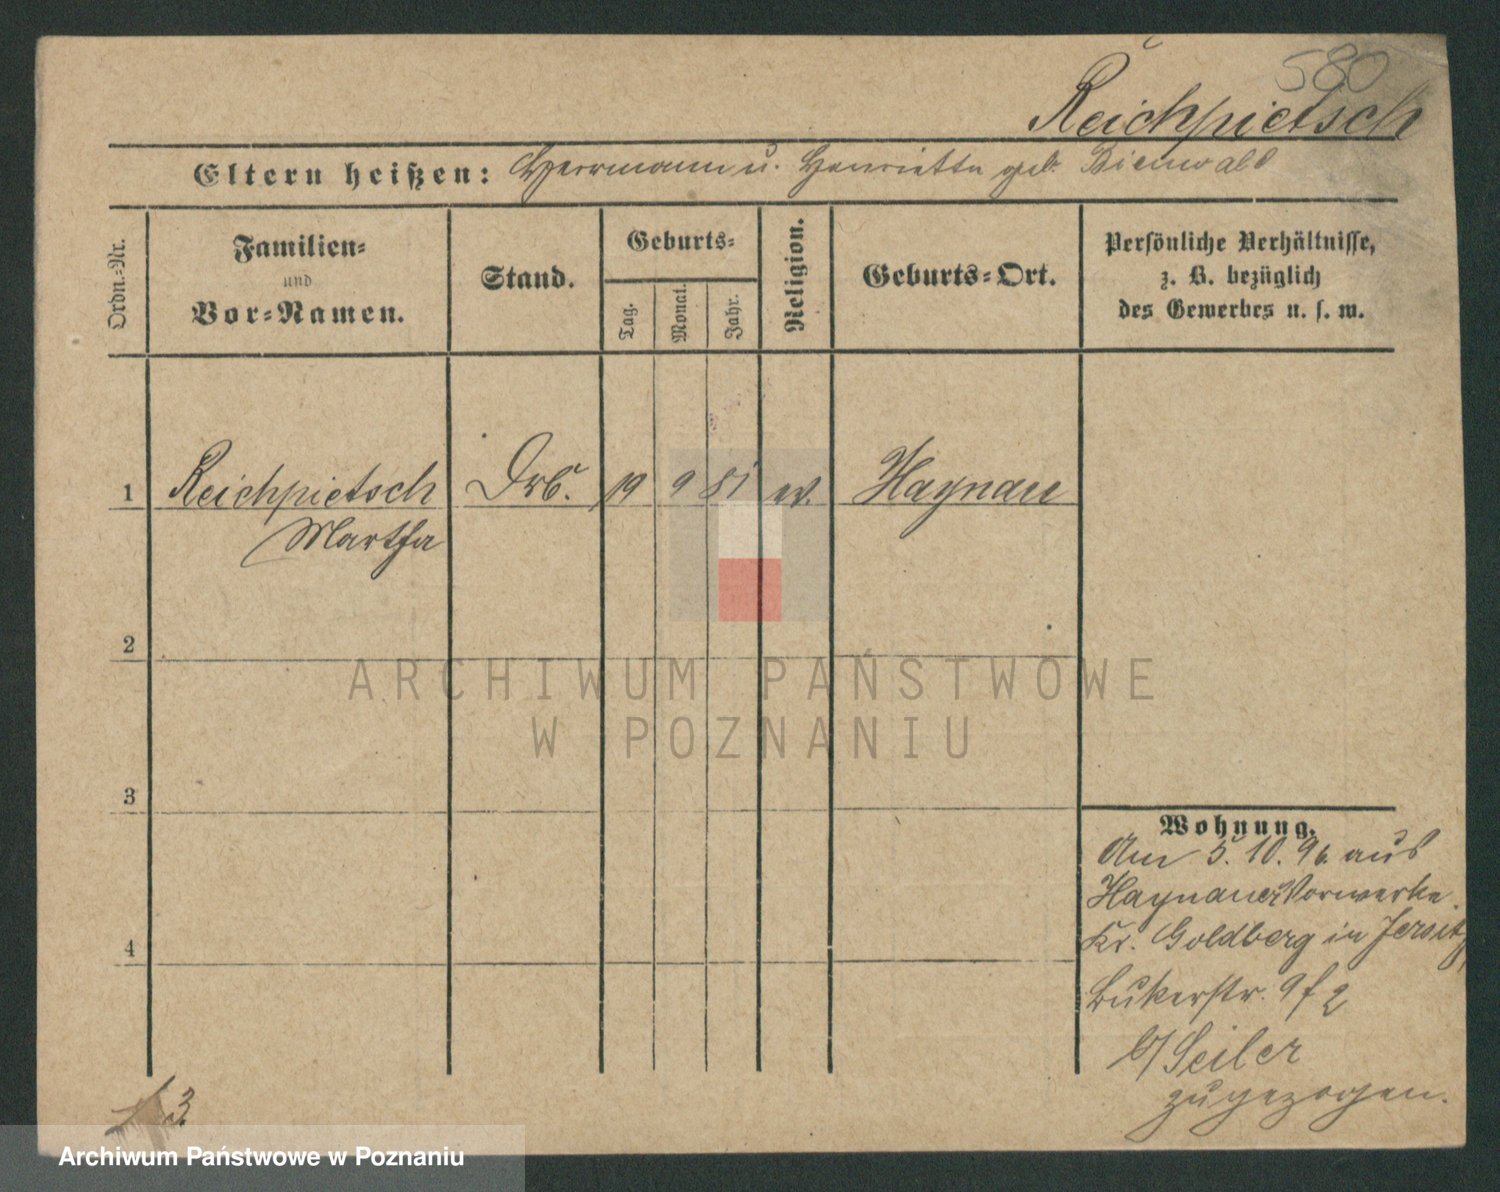 580
Reichpietsch
Eltern heißen: Herrmann u. Henriette geb. Bienwald
Ordn.-Nr.
Familien-
und
Vor-Namen.
Stand.
Geburts-
Tag.
Monat.
Jahr.
Religion.
Geburts-Ort.
Persönliche Verhältnisse,
z. B. bezüglich
des Gewerbes u. s. w.
1 Reichpietsch 19 9 81 Haynau
Martha
2
3
4
ARCHIWUM PAŃSTWOWE
W POZNANIU
Wohnung.
Am 5. 10. 96 aus
Haynauer Vorwerke
Kr. Goldberg in Jersitz
Bukerstr. 9 f 2
b/ Seiler
zugezogen.
3
Archiwum Państwowe w Poznaniu